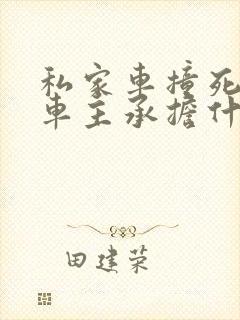 私家車撞死
車主承擔什
田建荣